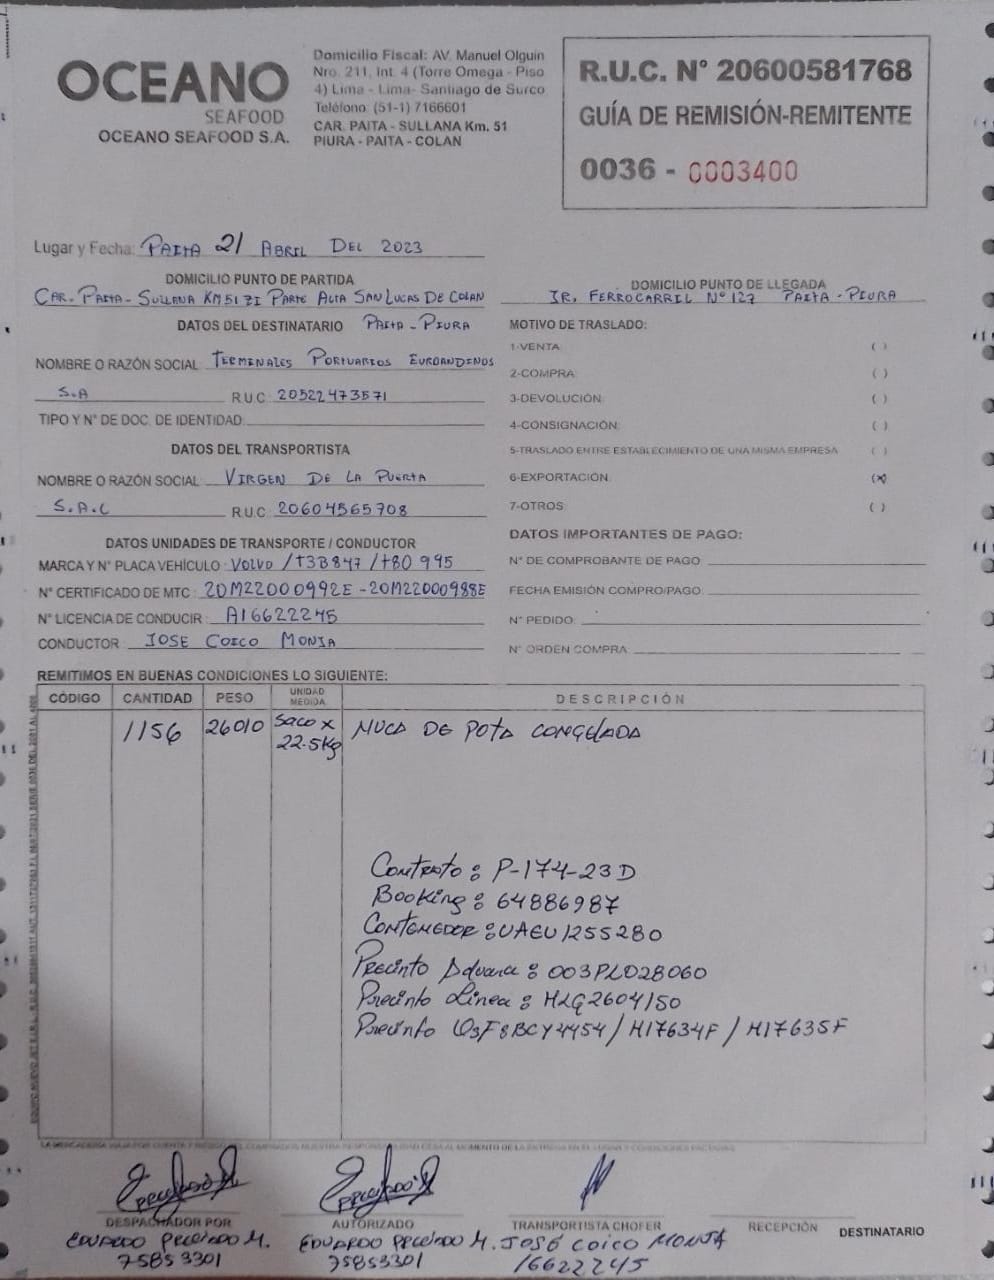 OCEANO
SEAFOOD
OCEANO SEAFOOD S.A.
Domicilio Fiscal: AV. Manuel Olguin
Nro. 211, Int. 4 (Torre Omega - Piso
4) Lima - Lima- Santiago de Surco
Teléfono: (51-1) 7166601
CAR. PAITA - SULLANA Km. 51
PIURA - PAITA - COLAN
R.U.C. N° 20600581768
GUÍA DE REMISIÓN-REMITENTE
0036 - 0003400
Lugar y Fecha: PAITA 21 ABRIL DEL 2023
DOMICILIO PUNTO DE PARTIDA
CAR. PAITA - SULLANA KM 51 ZI PARTE ALTA SAN LUCAS DE COLAN
DOMICILIO PUNTO DE LLEGADA
JR. FERROCARRIL N° 127 PAITA - PIURA
DATOS DEL DESTINATARIO PAITA - PIURA
NOMBRE O RAZÓN SOCIAL TERMINALES PORTUARIOS EUROANDINOS
S.A RUC 20522473571
TIPO Y N° DE DOC. DE IDENTIDAD:
DATOS DEL TRANSPORTISTA
NOMBRE O RAZÓN SOCIAL VIRGEN DE LA PUERTA
S.A.C RUC 20604565708
DATOS UNIDADES DE TRANSPORTE / CONDUCTOR
MARCA Y N° PLACA VEHÍCULO: VOLVO / T3B847 / T80 995
N° CERTIFICADO DE MTC: 20M22000992E - 20M22000988E
N° LICENCIA DE CONDUCIR: A16622245
CONDUCTOR: JOSE COICO MONJA
MOTIVO DE TRASLADO:
1-VENTA: ( )
2-COMPRA: ( )
3-DEVOLUCIÓN: ( )
4-CONSIGNACIÓN: ( )
5-TRASLADO ENTRE ESTABLECIMIENTO DE UNA MISMA EMPRESA ( )
6-EXPORTACIÓN: (x)
7-OTROS: ( )
DATOS IMPORTANTES DE PAGO:
N° DE COMPROBANTE DE PAGO
FECHA EMISIÓN COMPRO/PAGO:
N° PEDIDO:
N° ORDEN COMPRA:
REMITIMOS EN BUENAS CONDICIONES LO SIGUIENTE:
CÓDIGO CANTIDAD PESO UNIDAD MEDIDA DESCRIPCIÓN
1156 26010 Saco x 22.5kg NUCA DE POTA CONGELADA
Contrato: P-174-23D
Booking: 64886987
CONTENEDOR: UAEU1255280
Precinto Aduana: 003PLD28060
Precinto Linea: HLG2604150
Precinto F8BCY4454 / H17634F / H17635F
DESPACHADOR POR
EDUARDO PECIADO M.
75853301
AUTORIZADO
EDUARDO PECIADO M.
75853301
TRANSPORTISTA CHOFER
JOSÉ COICO MONJA
16622245
RECEPCIÓN DESTINATARIO